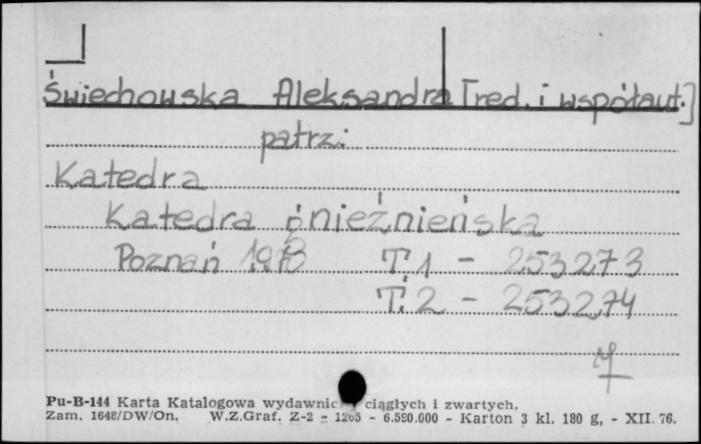 Świechowska Aleksandra [red. i współaut.]
patrz:
Katedra
Katedra gnieźnieńska
Poznań T.1 - 253273
T.2 - 253274
Pu-B-144 Karta Katalogowa ciągłych i zwartych.
Zam. 1648/DW/On. W.Z.Graf. Z-2 - 6.590.000 - Karton 3 kl. 180 g, - XII. 76.